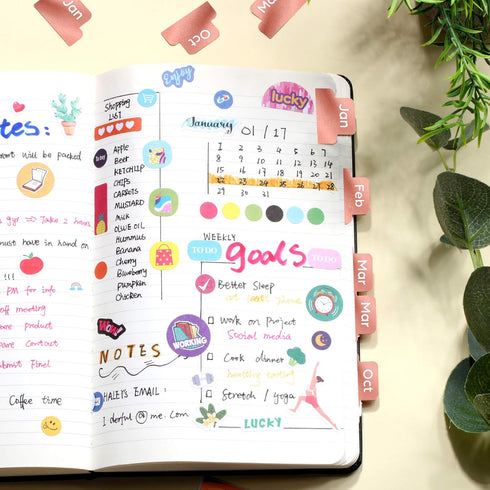 Jan
Oct
Mar
Enjoy
lucky
Jan
Shopping
LIST
January 01/17
1 2 3 4 5 6 7
8 9 10 11 12 13 14
15 16 17 18 19 20 21
22 23 24 25 26 27 28
29 30 31
TO DAY
Apple
Beef
KETCHUP
CHIPS
CARROTS
MUSTARD
MILK
OLIVE OIL
HUMMUS
Banana
Cherry
Blueberry
Pumpkin
Chicken
Feb
Mar
Mar
Oct
WEEKLY
TO DO goals TO DO
Better Sleep
Work on Project
Social media
Cook dinner
healthy eating
Stretch / yoga
LUCKY
WOW!
WORKING
NOTES
HALEY'S EMAIL :
me. com
tes:
will be packed
gyr => Take 2 hours
must have in hand on
!!!
PM for info
off meeting
pare product
pare Contact
ubmit Final
Coffee time